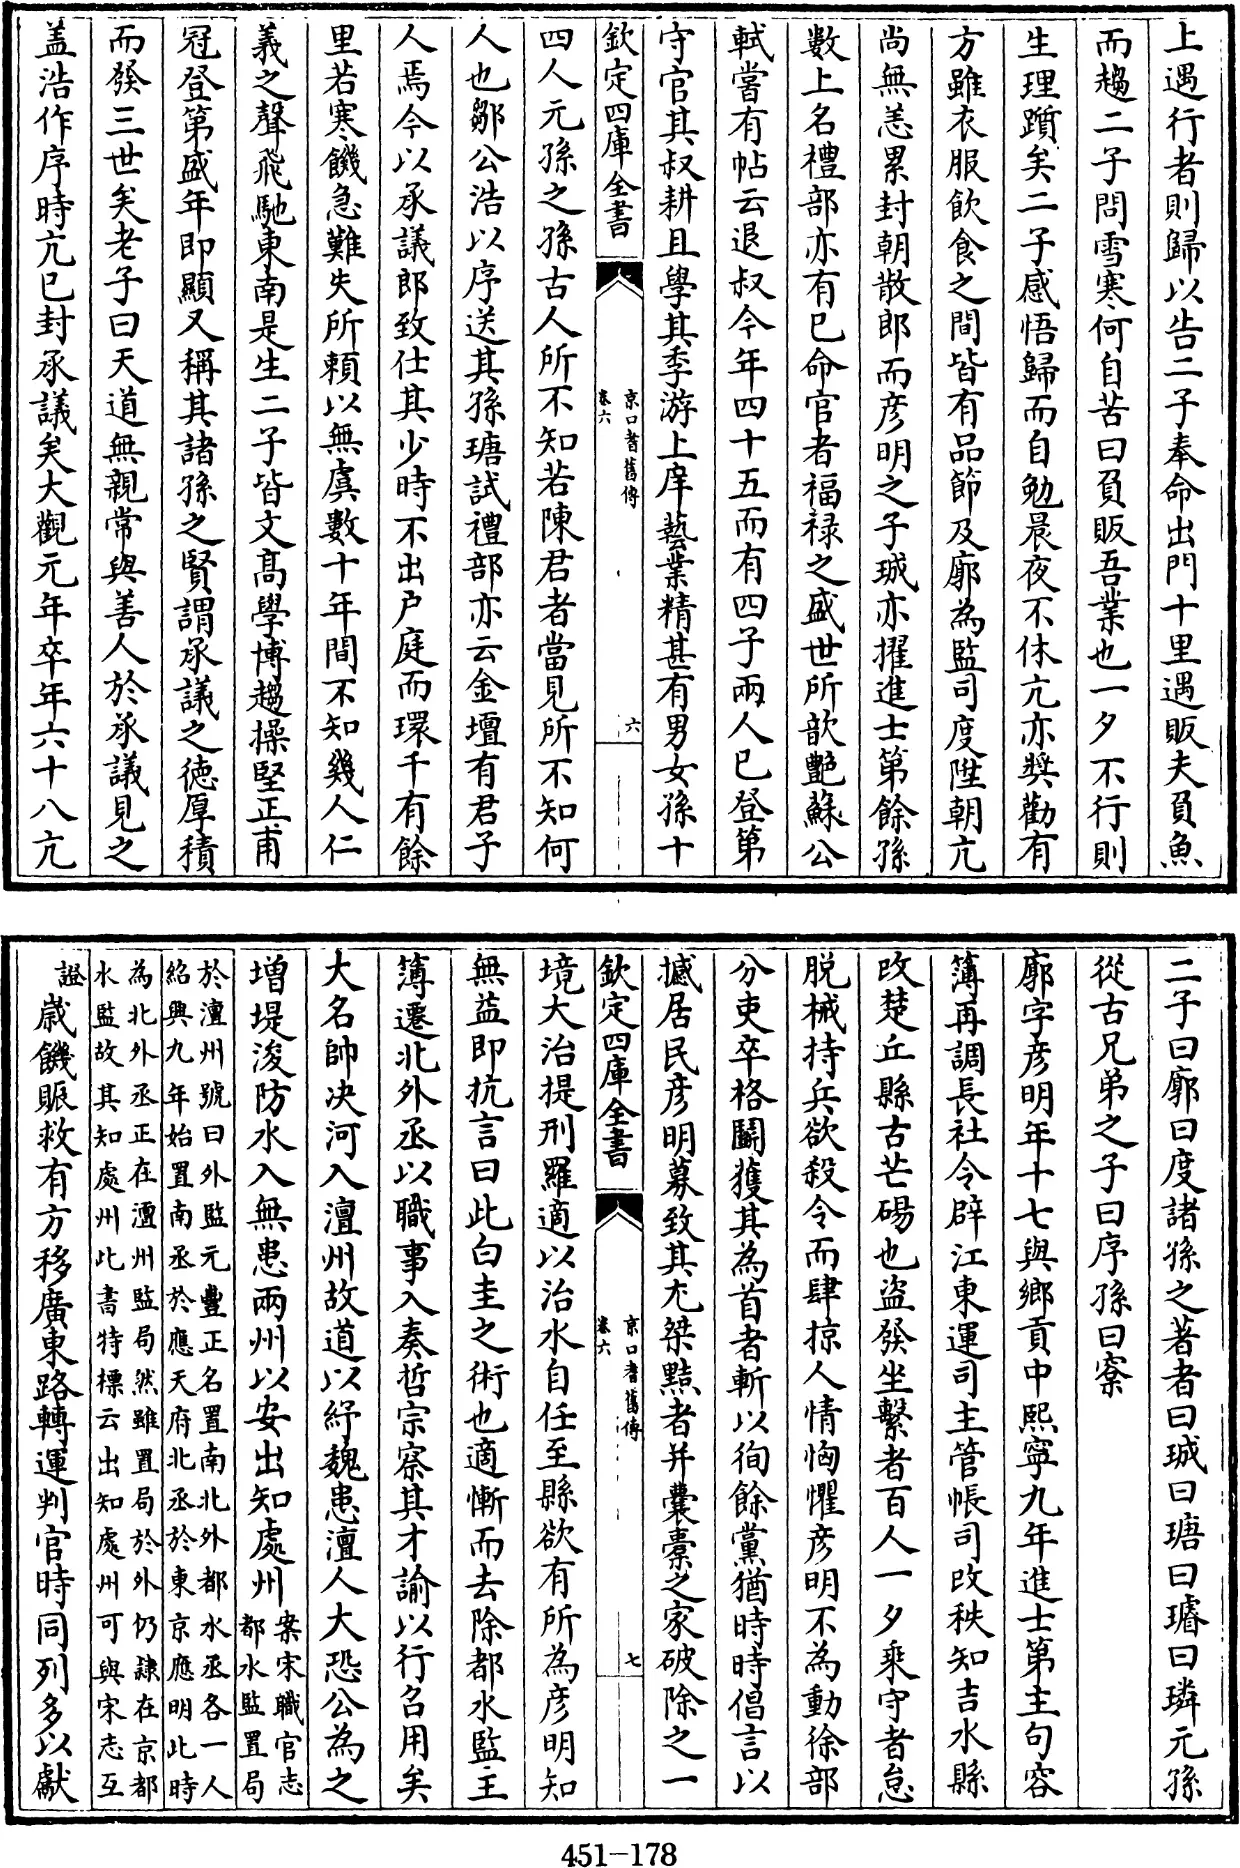 上遇行者則歸以告二子奉命出門十里遇販夫負魚
而趨二子問雪寒何自苦曰負販吾業也一夕不行則
生理躓矣二子感悟歸而自勉晨夜不休亢亦奬勸有
方雖衣服飲食之間皆有品節及廓為監司度陞朝亢
尚無恙累封朝散郎而彦明之子珹亦擢進士第餘孫
數上名禮部亦有已命官者福禄之盛世所歆艶蘇公
軾嘗有帖云退叔今年四十五而有四子兩人已登第
守官其叔耕且學其季游上庠藝業精甚有男女孫十
欽定四庫全書
京口耆舊傳
卷六
六
四人元孫之孫古人所不知若陳君者當見所不知何
人也鄒公浩以序送其孫瑭試禮部亦云金壇有君子
人焉今以承議郎致仕其少時不出户庭而環千有餘
里若寒饑急難失所頼以無虞數十年間不知幾人仁
義之聲飛馳東南是生二子皆文髙學博趨操堅正甫
冠登第盛年即顯又稱其諸孫之賢謂承議之徳厚積
而發三世矣老子曰天道無親常與善人於承議見之
盖浩作序時亢已封承議矣大觀元年卒年六十八亢
二子曰廓曰度諸孫之著者曰珹曰瑭曰璿曰璘元孫
從古兄弟之子曰序孫曰寀
廓字彦明年十七與鄉貢中熙寧九年進士第主句容
簿再調長社令辟江東運司主管帳司改秩知吉水縣
改楚丘縣古芒碭也盗發坐繫者百人一夕乗守者怠
脱械持兵欲殺令而肆掠人情恟懼彦明不為動徐部
分吏卒格鬭獲其為首者斬以徇餘黨猶時時倡言以
撼居民彦明募致其尤桀黠者并囊槖之家破除之一
欽定四庫全書
京口耆舊傳
卷六
七
境大治提刑羅適以治水自任至縣欲有所為彦明知
無益即抗言曰此白圭之術也適慚而去除都水監主
簿遷北外丞以職事入奏哲宗察其才諭以行召用矣
大名帥决河入澶州故道以紓魏患澶人大恐公為之
増堤浚防水入無患兩州以安出知處州
案宋職官志
都水監置局
於澶州號曰外監元豐正名置南北外都水丞各一人
紹興九年始置南丞於應天府北丞於東京應明此時
為北外丞正在澶州監局然雖置局於外仍隷在京都
水監故其知處州此書特標云出知處州可與宋志互
證
歳饑賑救有方移廣東路轉運判官時同列多以獻
451-178